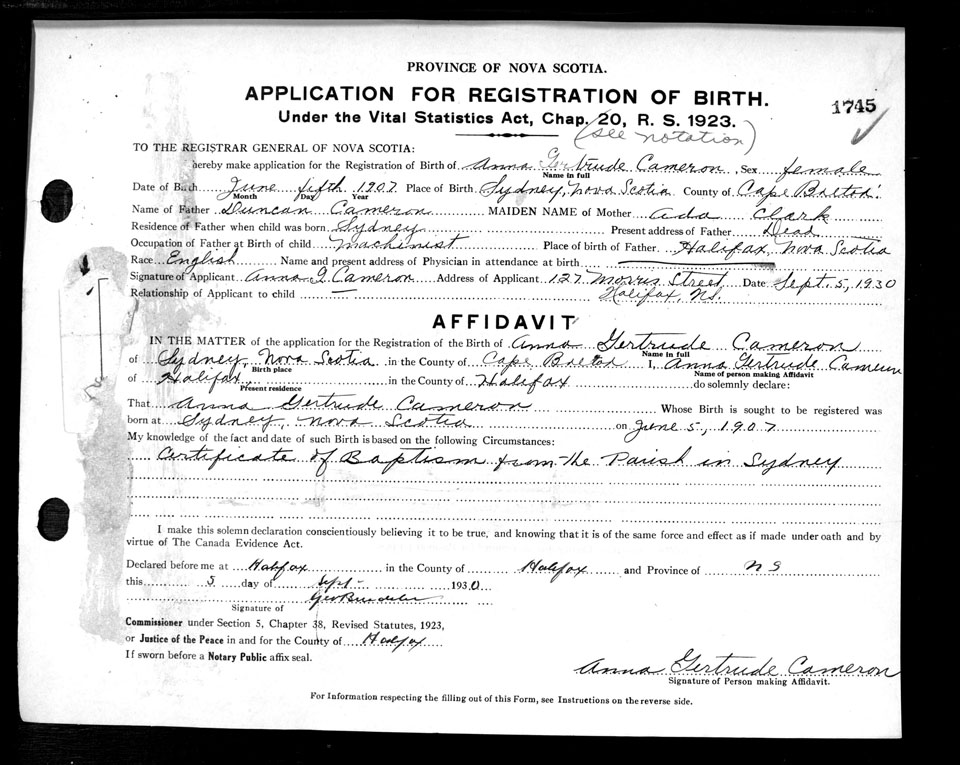 PROVINCE OF NOVA SCOTIA.
APPLICATION FOR REGISTRATION OF BIRTH.
1745
Under the Vital Statistics Act, Chap. 20, R. S. 1923.
(see notation)
TO THE REGISTRAR GENERAL OF NOVA SCOTIA:
hereby make application for the Registration of Birth of Anna Gertrude Cameron Sex female
Name in full
Date of Birth June fifth 1907 Place of Birth Sydney, Nova Scotia County of Cape Breton
Month Day Year
Name of Father Duncan Cameron MAIDEN NAME of Mother Ada Clark
Residence of Father when child was born Sydney Present address of Father Dead
Occupation of Father at Birth of child Machinist Place of birth of Father Halifax, Nova Scotia
Race English Name and present address of Physician in attendance at birth
Signature of Applicant Anna G Cameron Address of Applicant 127 Morris Street, Date Sept. 5, 1930
Relationship of Applicant to child — Halifax, NS.
AFFIDAVIT
IN THE MATTER of the application for the Registration of the Birth of Anna Gertrude Cameron
Name in full
of Sydney, Nova Scotia in the County of Cape Breton I, Anna Gertrude Cameron
Birth place Name of person making Affidavit
of Halifax, in the County of Halifax do solemnly declare:
Present residence
That Anna Gertrude Cameron Whose Birth is sought to be registered was
born at Sydney, Nova Scotia on June 5, 1907
My knowledge of the fact and date of such Birth is based on the following Circumstances:
Certificate of Baptism from the Parish in Sydney
I make this solemn declaration conscientiously believing it to be true, and knowing that it is of the same force and effect as if made under oath and by
virtue of The Canada Evidence Act.
Declared before me at Halifax in the County of Halifax and Province of N S
this 5 day of Sept- 1930
Signature of
Commissioner under Section 5, Chapter 38, Revised Statutes, 1923,
or Justice of the Peace in and for the County of Halifax
If sworn before a Notary Public affix seal.
Anna Gertrude Cameron
Signature of Person making Affidavit.
For Information respecting the filling out of this Form, see Instructions on the reverse side.